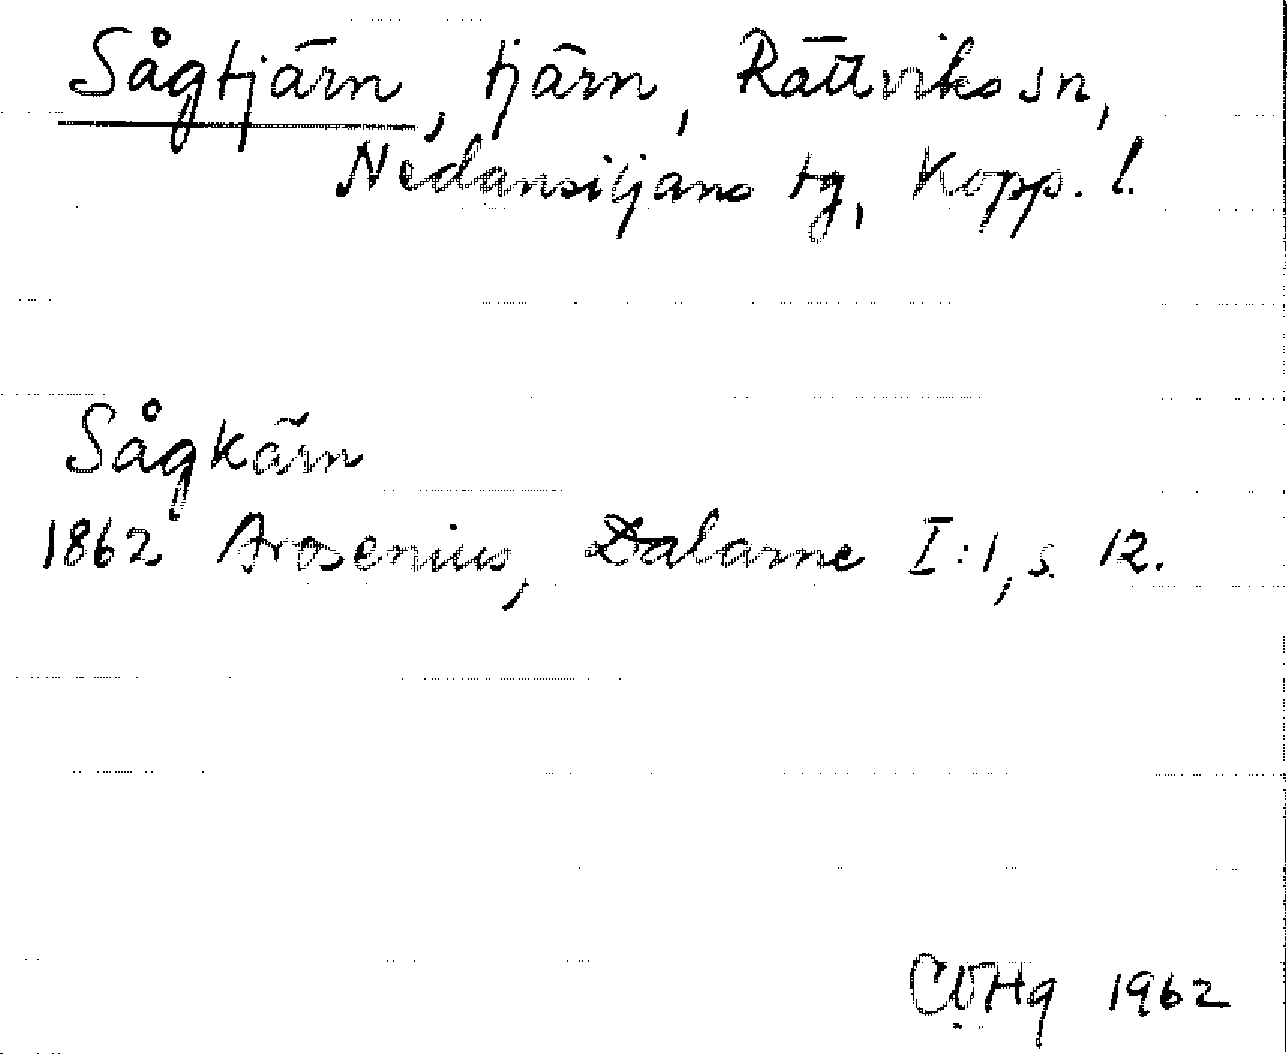 Sågtjärn, tjärn, Rättviks sn,
Nedansiljans tg, Kopp. l.
Sågkärn
1862 Arosenius, Dalarne I:1, s. 12.
1962